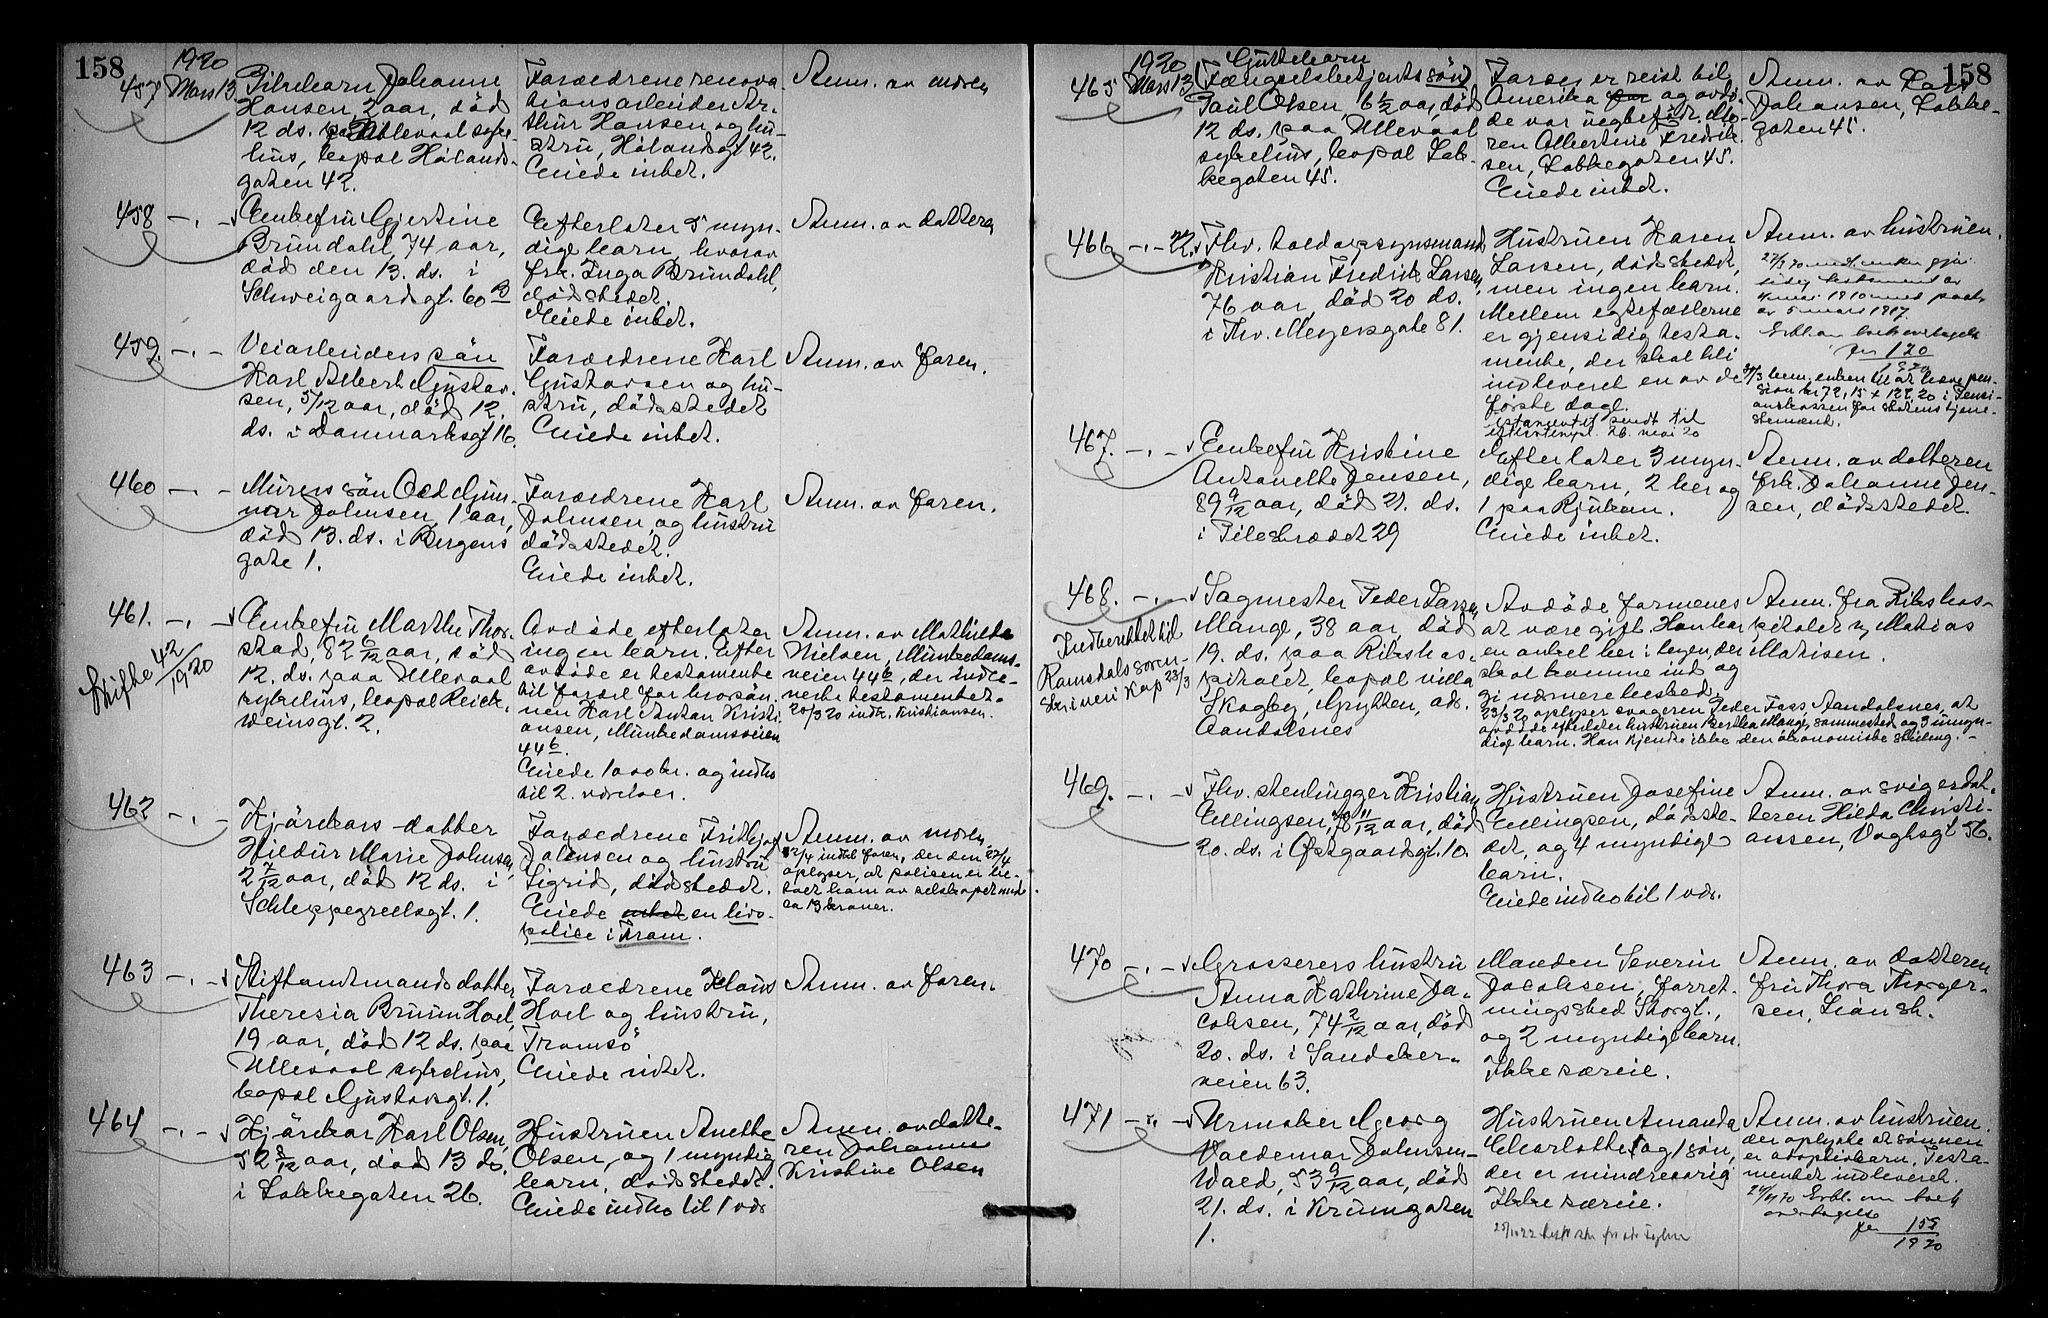 158
1920
457 Mars 13. Pikebarn Johanne
Hansen, 2 aar, död
12 ds. paa Ullevaal syke-
hus, bopæl Hölands-
gaten 42.
Forældrene renova-
tionsarbeider Ar-
thur Hansen og hu-
stru, Hölandsgt 42.
Eiede intet.
Anm. av moren
458 -"- Enkefru Gjertine
Brundahl, 74 aar,
död den 13. ds. i
Schweigaardsgt. 60 B
Efterlater 5 myn-
dige barn, hvorav
frk. Inga Brundahl,
dödsstedet.
Eiede intet.
Anm. av datteren
459. -"- Veiarbeiders sön
Karl Albert Gustav-
sen, 5/12 aar, död 12.
ds. i Danmarksgt 16.
Forældrene Karl
Gustavsen og hu-
stru, dödsstedet
Eiede intet.
Anm. av faren.
460 -"- Murers sön Odd Gun-
nar Johnsen, 1 aar,
död 13. ds. i Bergens
gate 1.
Forældrene Karl
Johnsen og hustru
dödsstedet.
Eiede intet.
Anm. av faren.
461. -"- Enkefru Marthe Thor-
stad, 82 6/12 aar, död
12. ds. paa Ullevaal
sykehus, bopæl Reich-
weinsgt. 2.
Skifte 42/1920
Avdöde efterlater
ingen barn. Efter
avdöde er testamente
til fordel for brorsön-
nen Karl Anton Kristi-
ansen, Munkedamsveien
44 b.
Eiede 1000 kr. og indbo
til 2. værelser.
Anm. av Mathilde
Nielsen, Munkedams-
veien 44 b, der indle-
verte testamentet.
20/3 20 indk. Kristiansen.
462 -"- Kjörekars datter
Hildur Marie Johnsen,
2 7/12 aar, död 12 ds. i
Schleppegrellsgt. 1.
Forældrene Frithjof
Johnsen og hustru
Sigrid, dödsstedet.
Eiede intet en livs-
police i Fram.
Anm. av moren.
12/4 indk faren, der den 22/4
oplyser, at policen er be-
talt ham av selskapet med
ca 13 kroner.
463 -"- Stiftamtmands datter
Theresia Bruun Hoel,
19 aar, död 12 ds. paa
Ullevaal sykehus,
bopæl Gustavsgt. 1.
Forældrene Klaus
Hoel og hustru,
Tromsö
Eiede intet.
Anm. av faren.
464 -"- Kjörekar Karl Olsen,
52 8/12 aar, död 13 ds.
i Lakkegaten 26.
Hustruen Anethe
Olsen, og 1 myndig
barn, dödsstedet.
Eiede indbo til 1 vær
Anm. av datte-
ren Johanne
Kristine Olsen
158
1920
465 Mars 13 Guttebarn
(Fængselsbetjents sön)
Paul Olsen, 6 1/2 aar, död
12 ds. paa Ullevaal
sykehus, bopæl Lak-
kegaten 45.
Faren er reist til
Amerika og avdö-
de var
Albertine Fredrik-
sen, Lakkegaten 45.
Eiede intet.
Anm. av
Johansen, Lakke-
gaten 45.
466 -"- 22. Fhv. toldopsynsmand
Kristian Fredrik Larsen,
76 aar, död 20 ds.
i Thv. Meyersgate 81.
Hustruen Karen
Larsen, dödsstedet,
men ingen barn.
Mellem egtefællerne
er gjensidig testa-
mente, der skal bli
indleveret en av de
förste dage.
testamentet sendt til
26. mai 20
Anm. av hustruen.
27/3 20 enken gjen-
sidig testament av
1910 med
av 5 mars 1917.
Erkl. om boets overtagelse
jnr 120/1920
31/3 bem. enken til at hæve pen-
sion kr 72,15 + 122,20 i Pensi-
onskassen for statens tjene-
stemænd.
467. -"- Enkefru Kristine
Antonette Jensen,
89 9/12 aar, död 21. ds.
i Pilestrædet 29
Efterlater 3 myn-
dige barn, 2 her og
1 paa Rjukan.
Eiede intet.
Anm. av datteren
frk. Johanne Jen-
sen, dödsstedet.
468. -"- Sagmester Peder Larsen
Mange, 38 aar, död
19. ds. paa Rikshos-
pitalet, bopæl villa
Skogly, Grytten, adr.
Aandalsnes
Indberettet til
Romsdals soren-
skriveri Kap 23/3
Avdöde formenes
at være gift. Han har
en onkel her i byen, der
skal komme ind og
gi nærmere besked.
23/3 20 oplyser svogeren Peder Foss, Aandalsnes, at
avdöde efterlater hustruen Bertha Mange, sammesteds og 3 umyn-
dige barn. Han kjendte ikke den ökonomiske stilling.
Anm. fra Rikshos-
pitalet v/ Mathias
Mathisen.
469. -"- Fhv. stenhugger Kristian
Ellingsen, 78 11/12 aar, död
20. ds. i Östgaardsgt. 10.
Hustruen Josefine
Ellingsen, dödsste-
det, og 4 myndige
barn.
Eiede indbo til 1 vær.
Anm. av svigerdat-
teren Hilda Christi-
anssen, Vogtsgt 56.
470 -"- Grosserers hustru
Anna Kathrine Ja-
cobsen, 74 2/12 aar, död
20. ds. i Sandaker-
veien 63.
Manden Severin
Jacobsen, forret-
ningssted Storgt.,
og 2 myndige barn.
Ikke særeie.
Anm. av datteren
fru Thora Thorger-
sen, Lian st.
471 -"- Urmaker Georg
Valdemar Johnsen-
Wald, 53 9/12 aar, död
21. ds. i Krumgaten
1.
Hustruen Amanda
Charlotte, og 1 sön,
der er mindreaarig
Ikke særeie.
Anm. av hustruen.
der oplyste at sönnen
er adoptivbarn. Testa-
mentet indleveret.
Erkl. om boets
overtagelse
jnr 155/1920